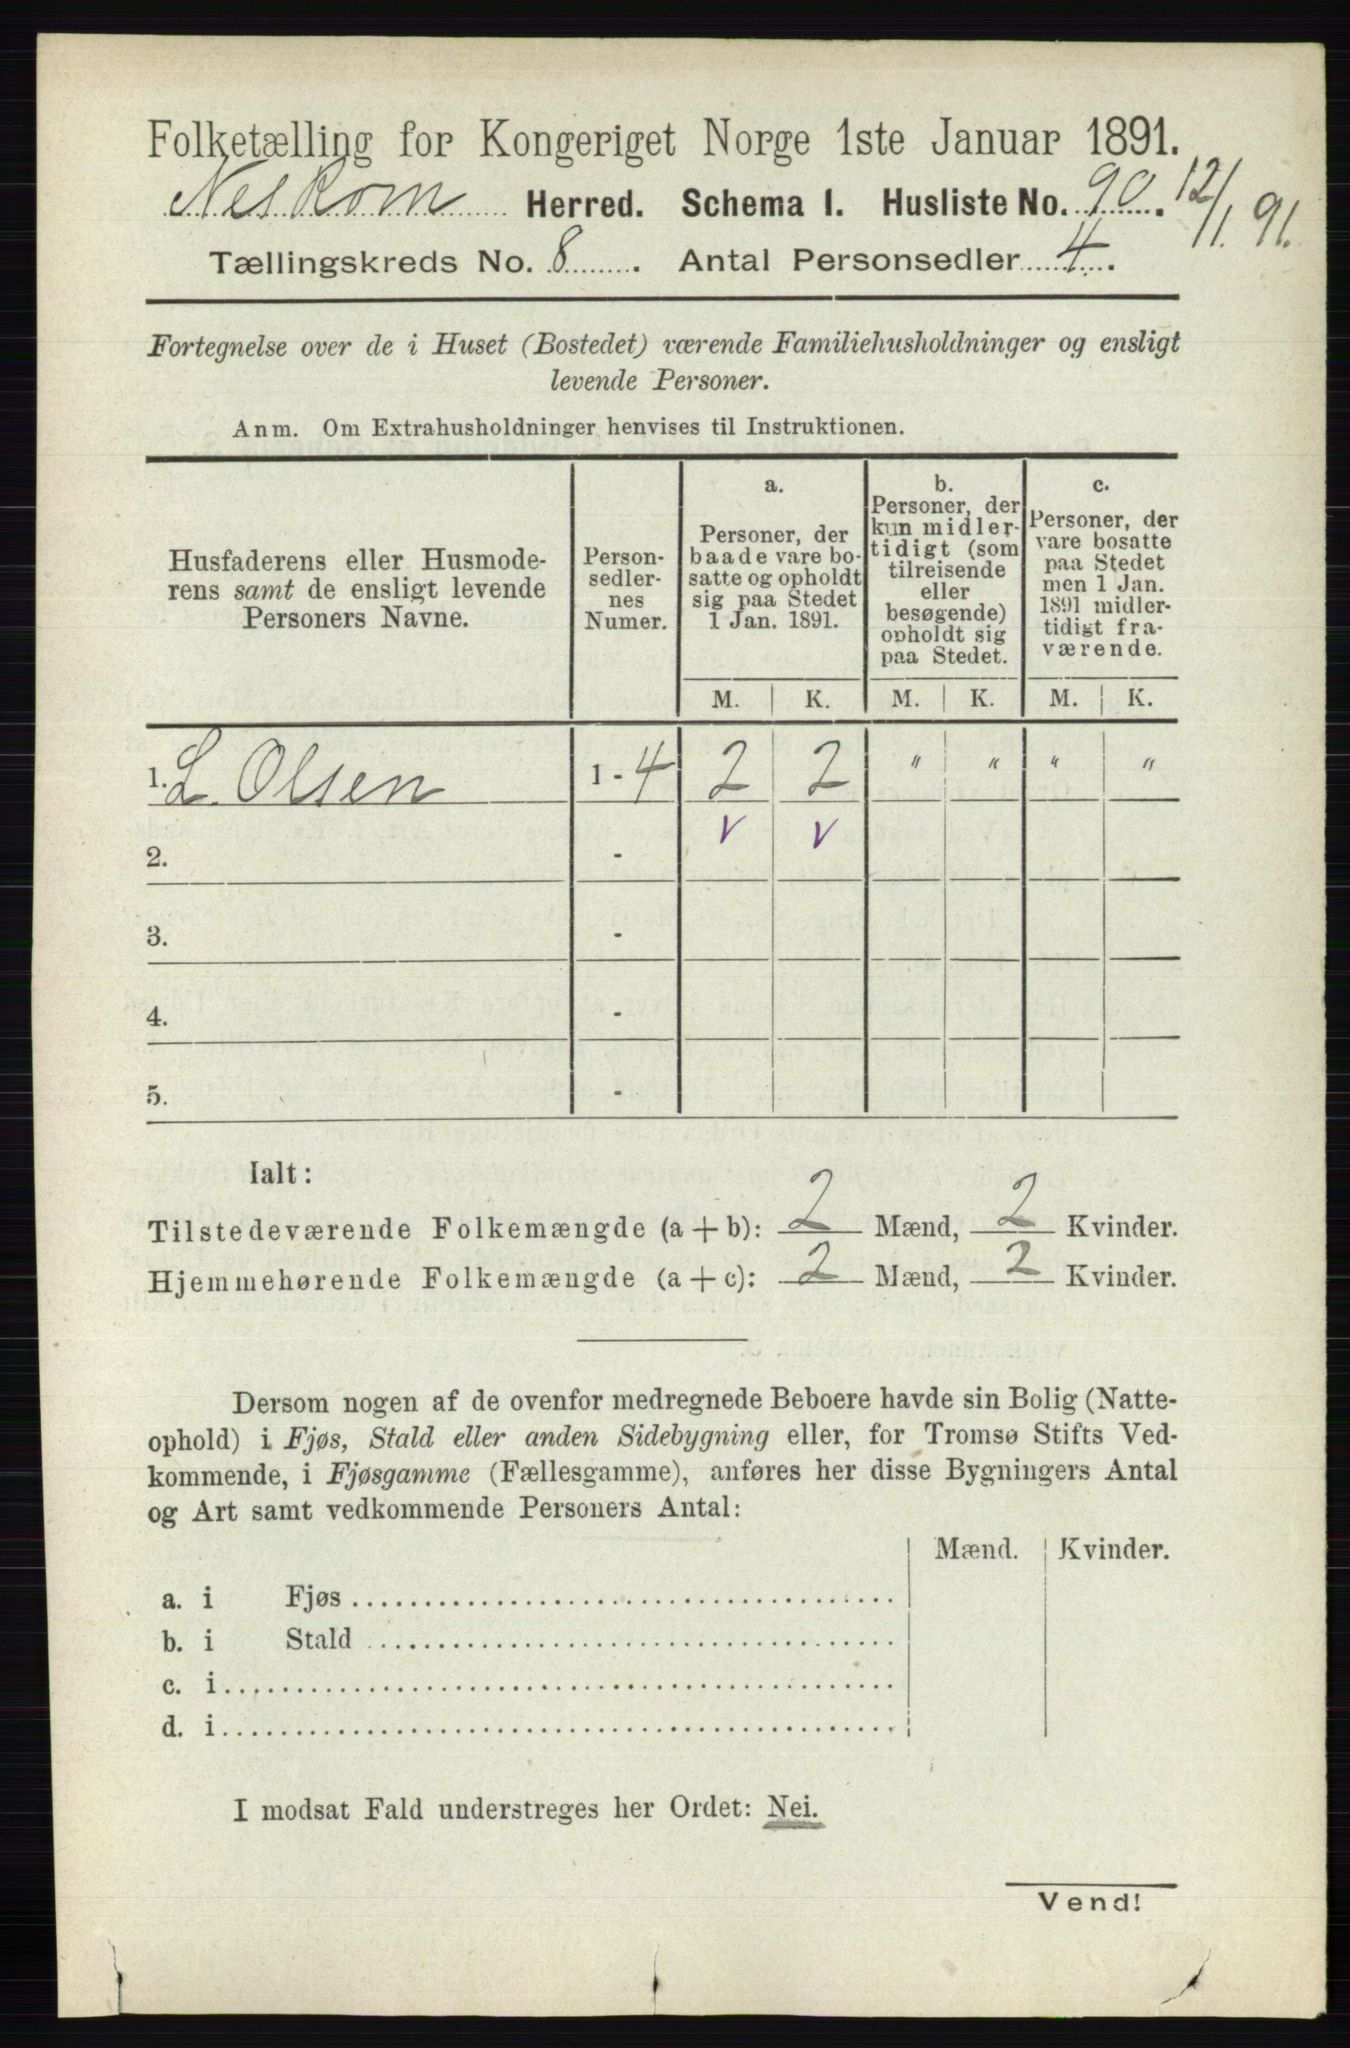 Folketælling for Kongeriget Norge 1ste Januar 1891.
Neskom Herred. Schema I. Husliste No. 90. 12/1. 91.
Tællingskreds No. 8. Antal Personsedler 4.
Fortegnelse over de i Huset (Bostedet) værende Familiehusholdninger og ensligt
levende Personer.
Anm. Om Extrahusholdninger henvises til Instruktionen.
Husfaderens eller Husmode-
rens samt de ensligt levende
Personers Navne.
Person-
sedler-
nes
Numer.
a.
Personer, der
baade vare bo-
satte og opholdt
sig paa Stedet
1 Jan. 1891.
b.
Personer, der
kun midler-
tidigt (som
tilreisende
eller
besøgende)
opholdt sig
paa Stedet.
c.
Personer, der
vare bosatte
paa Stedet
men 1 Jan.
1891 midler-
tidigt fra-
værende.
M. K. M. K. M. K.
1. L. Olsen 1 - 4 2 2 " " " "
2. - v v
3. -
4. -
5. -
Ialt:
Tilstedeværende Folkemængde (a + b): 2 Mænd, 2 Kvinder.
Hjemmehørende Folkemængde (a + c): 2 Mænd, 2 Kvinder.
Dersom nogen af de ovenfor medregnede Beboere havde sin Bolig (Natte-
ophold) i Fjøs, Stald eller anden Sidebygning eller, for Tromsø Stifts Ved-
kommende, i Fjøsgamme (Fællesgamme), anføres her disse Bygningers Antal
og Art samt vedkommende Personers Antal:
Mænd. Kvinder.
a. i Fjøs
b. i Stald
c. i
d. i
I modsat Fald understreges her Ordet: Nei.
Vend!